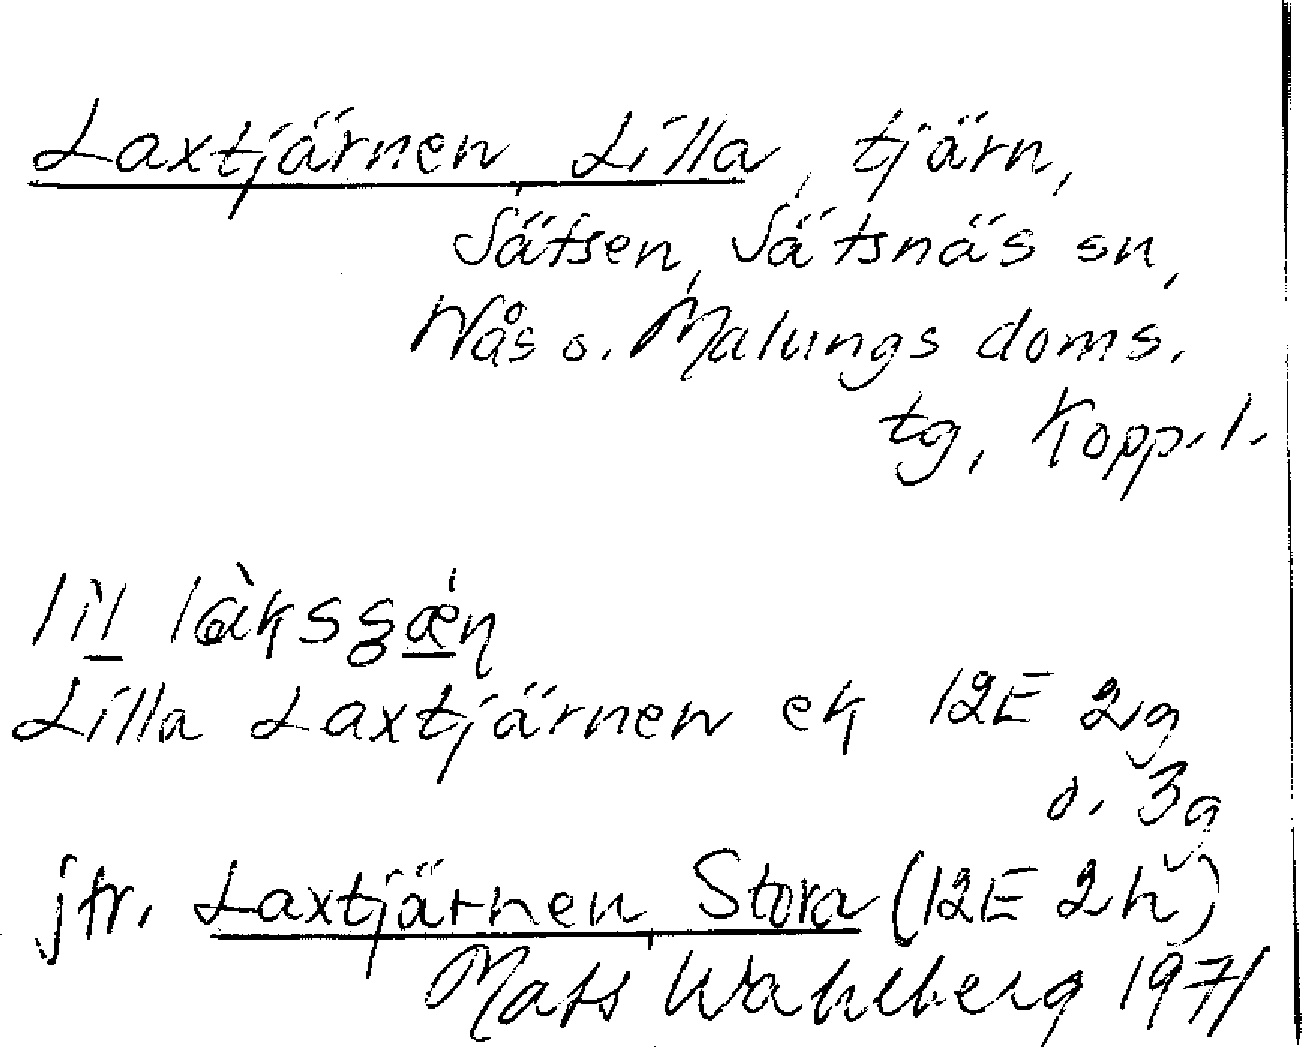 Laxtjärnen, Lilla, tjärn,
Sätsen, Sätsnäs sn,
Nås o. Malungs doms.
tg, Kopp. l.
Lilla Laxtjärnen ek 12E 2g
o. 3g
jfr. Laxtjärnen, Stora (12E 2h)
Mats Wahlberg 1971